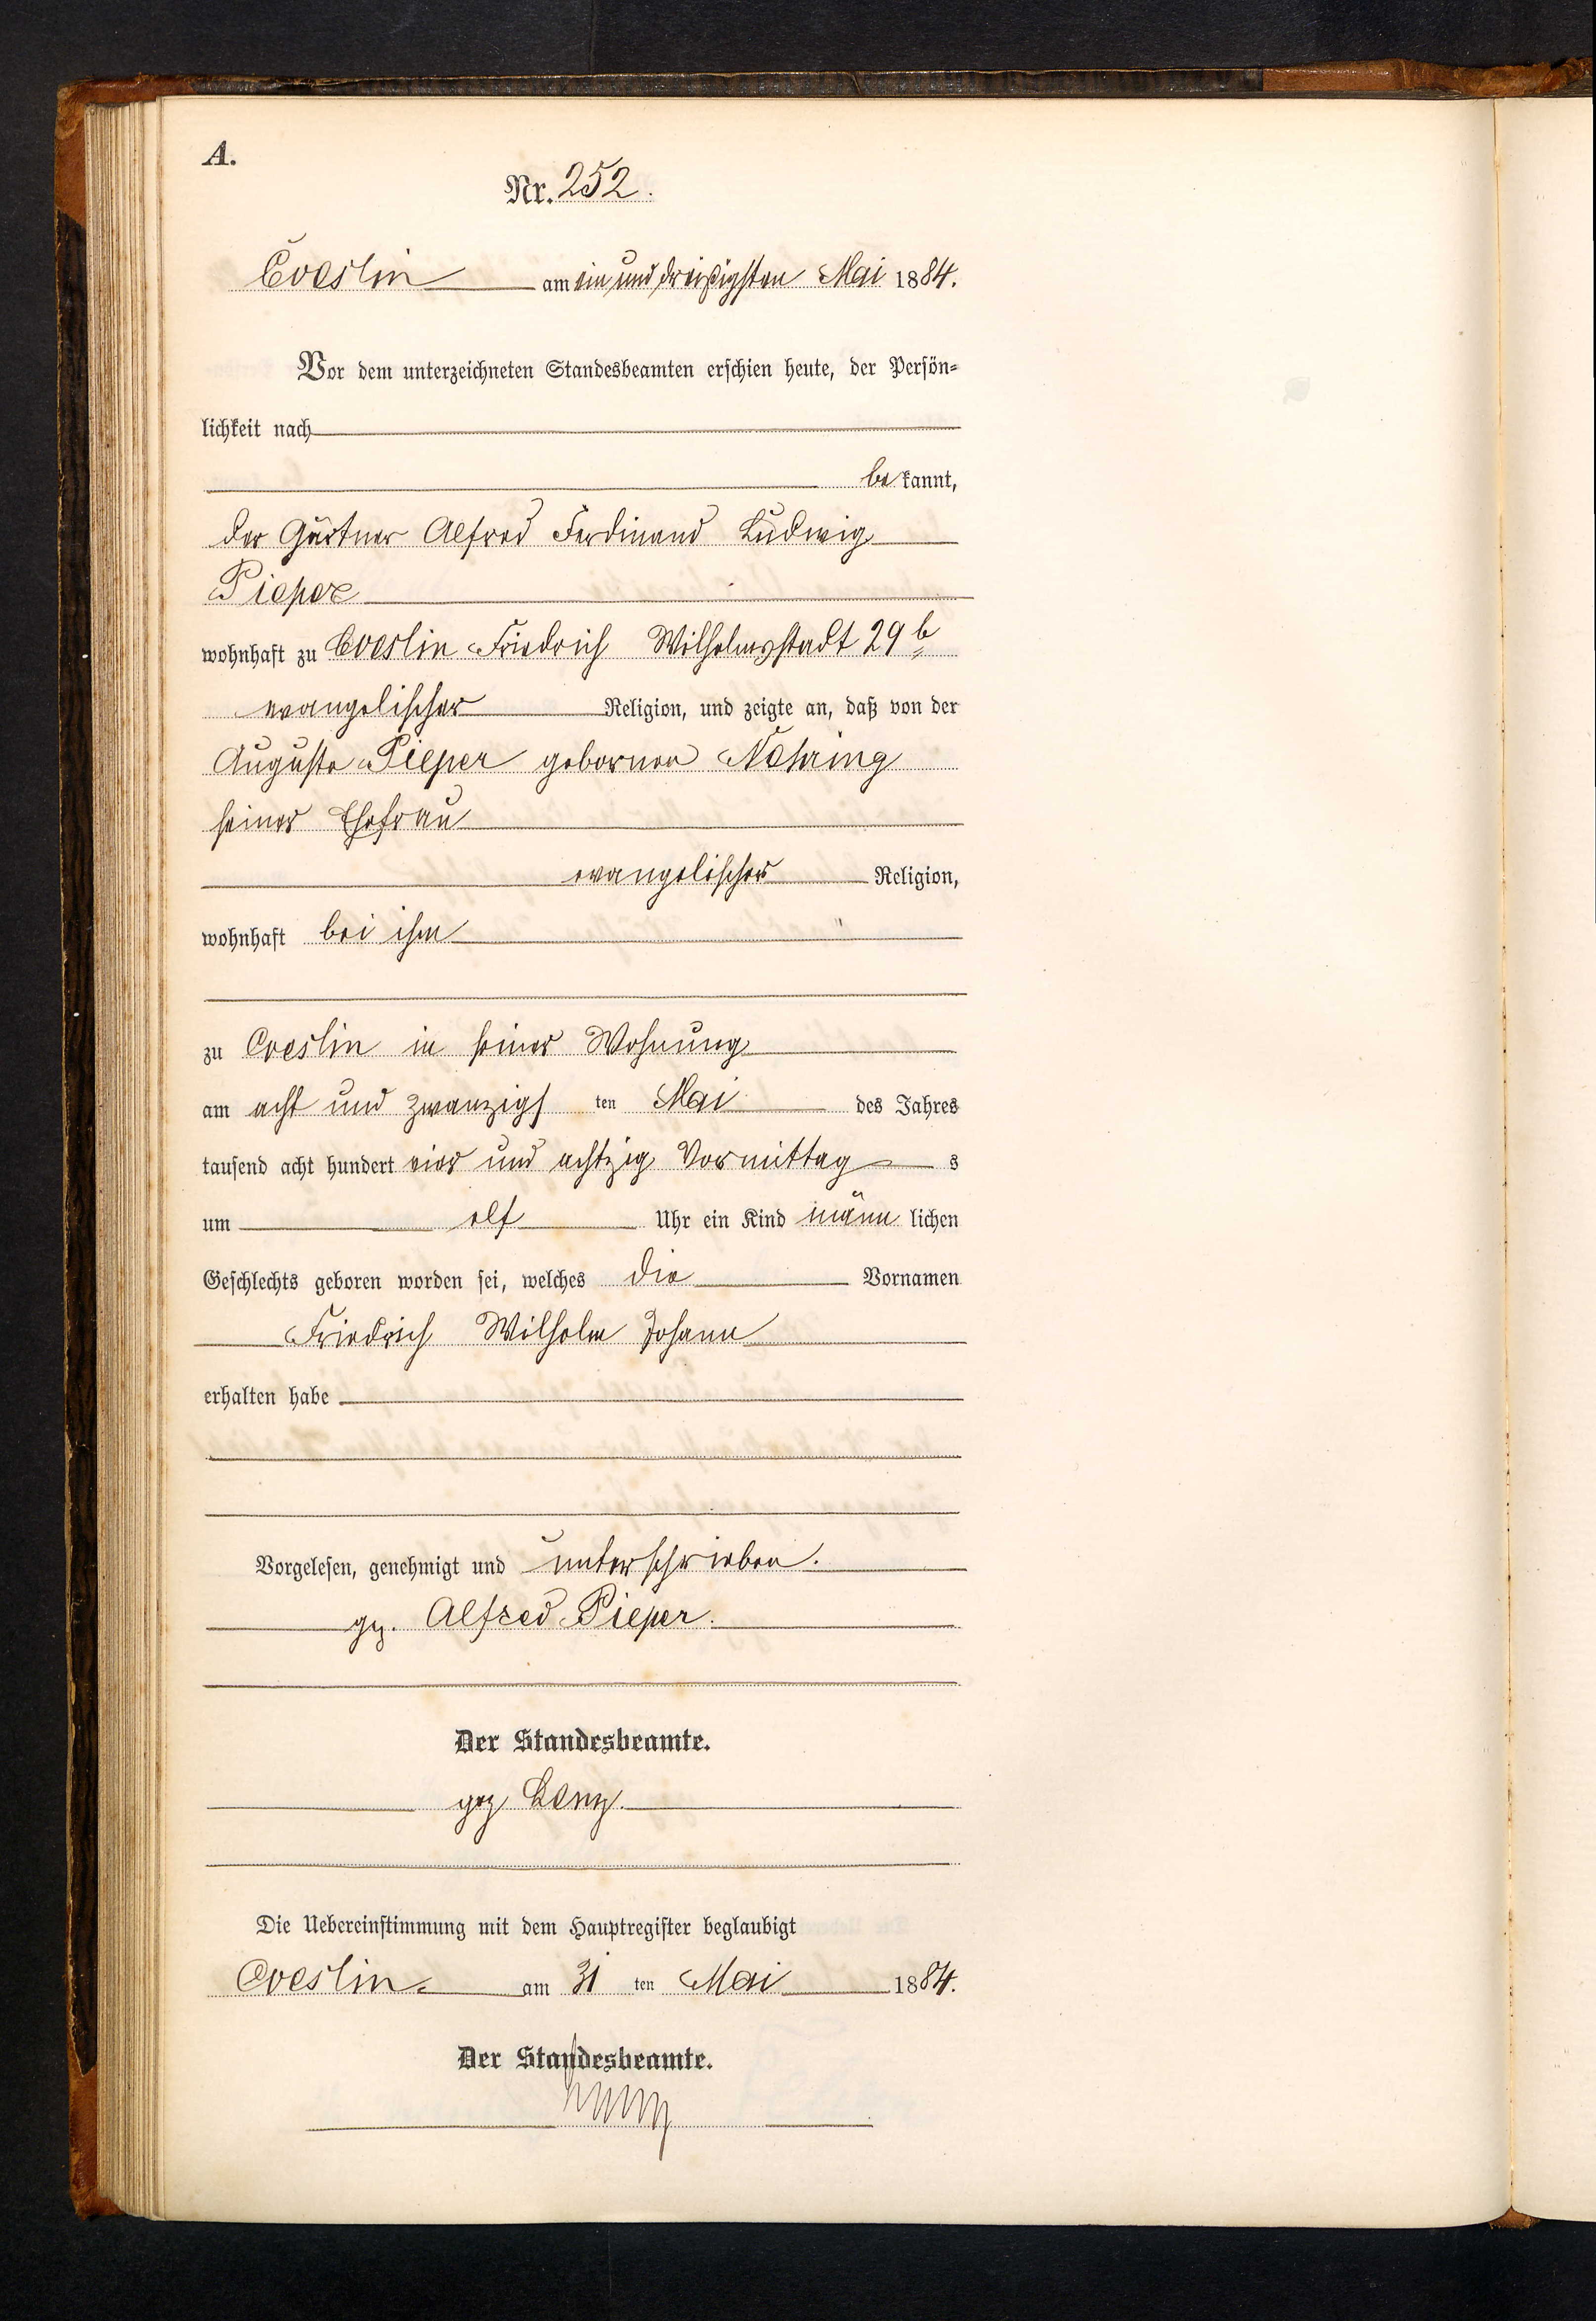 A.
Nr. 252.
Coeslin am ein und dreißigsten Mai 1884.
Vor dem unterzeichneten Standesbeamten erschien heute, der Persön=
lichkeit nach
bekannt,
der Gärtner Alfred Ferdinand Ludwig
Pieper
wohnhaft zu Coeslin Friedrich Wilhelmsstadt 29 b
evangelischer Religion, und zeigte an, daß von der
Auguste Pieper geborenen Nehring
seiner Ehefrau
evangelischer Religion,
wohnhaft bei ihm
zu Coeslin in seiner Wohnung
am acht und zwanzigsten Mai des Jahres
tausend acht hundert vier und achtzig Vormittags
um elf Uhr ein Kind männlichen
Geschlechts geboren worden sei, welches die Vornamen
Friedrich Wilhelm Johann
erhalten habe
Vorgelesen, genehmigt und unterschrieben.
gez. Alfred Pieper.
Der Standesbeamte.
gez
Die Uebereinstimmung mit dem Hauptregister beglaubigt
Coeslin am 31 ten Mai 1884.
Der Standesbeamte.